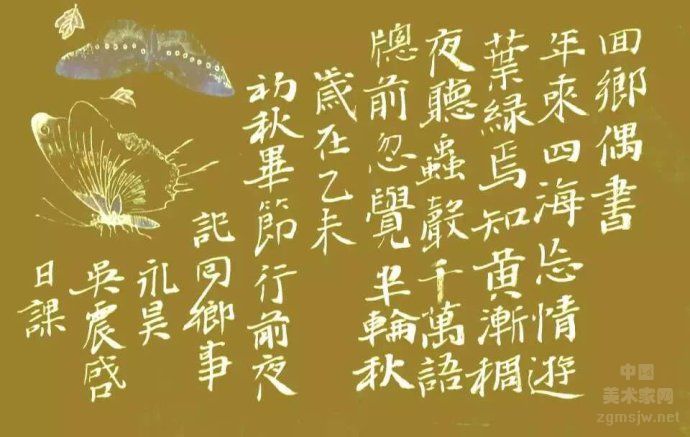 回鄉偶書
年來四海恣情遊
葉綠焉知黃漸稠
夜聽蟲聲千萬語
牕前忽覺半輪秋
歲在乙未
初秋畢節行前夜
記回鄉事
永昊
吳震啓
日課
中国
美术家网
zgmsjw.net